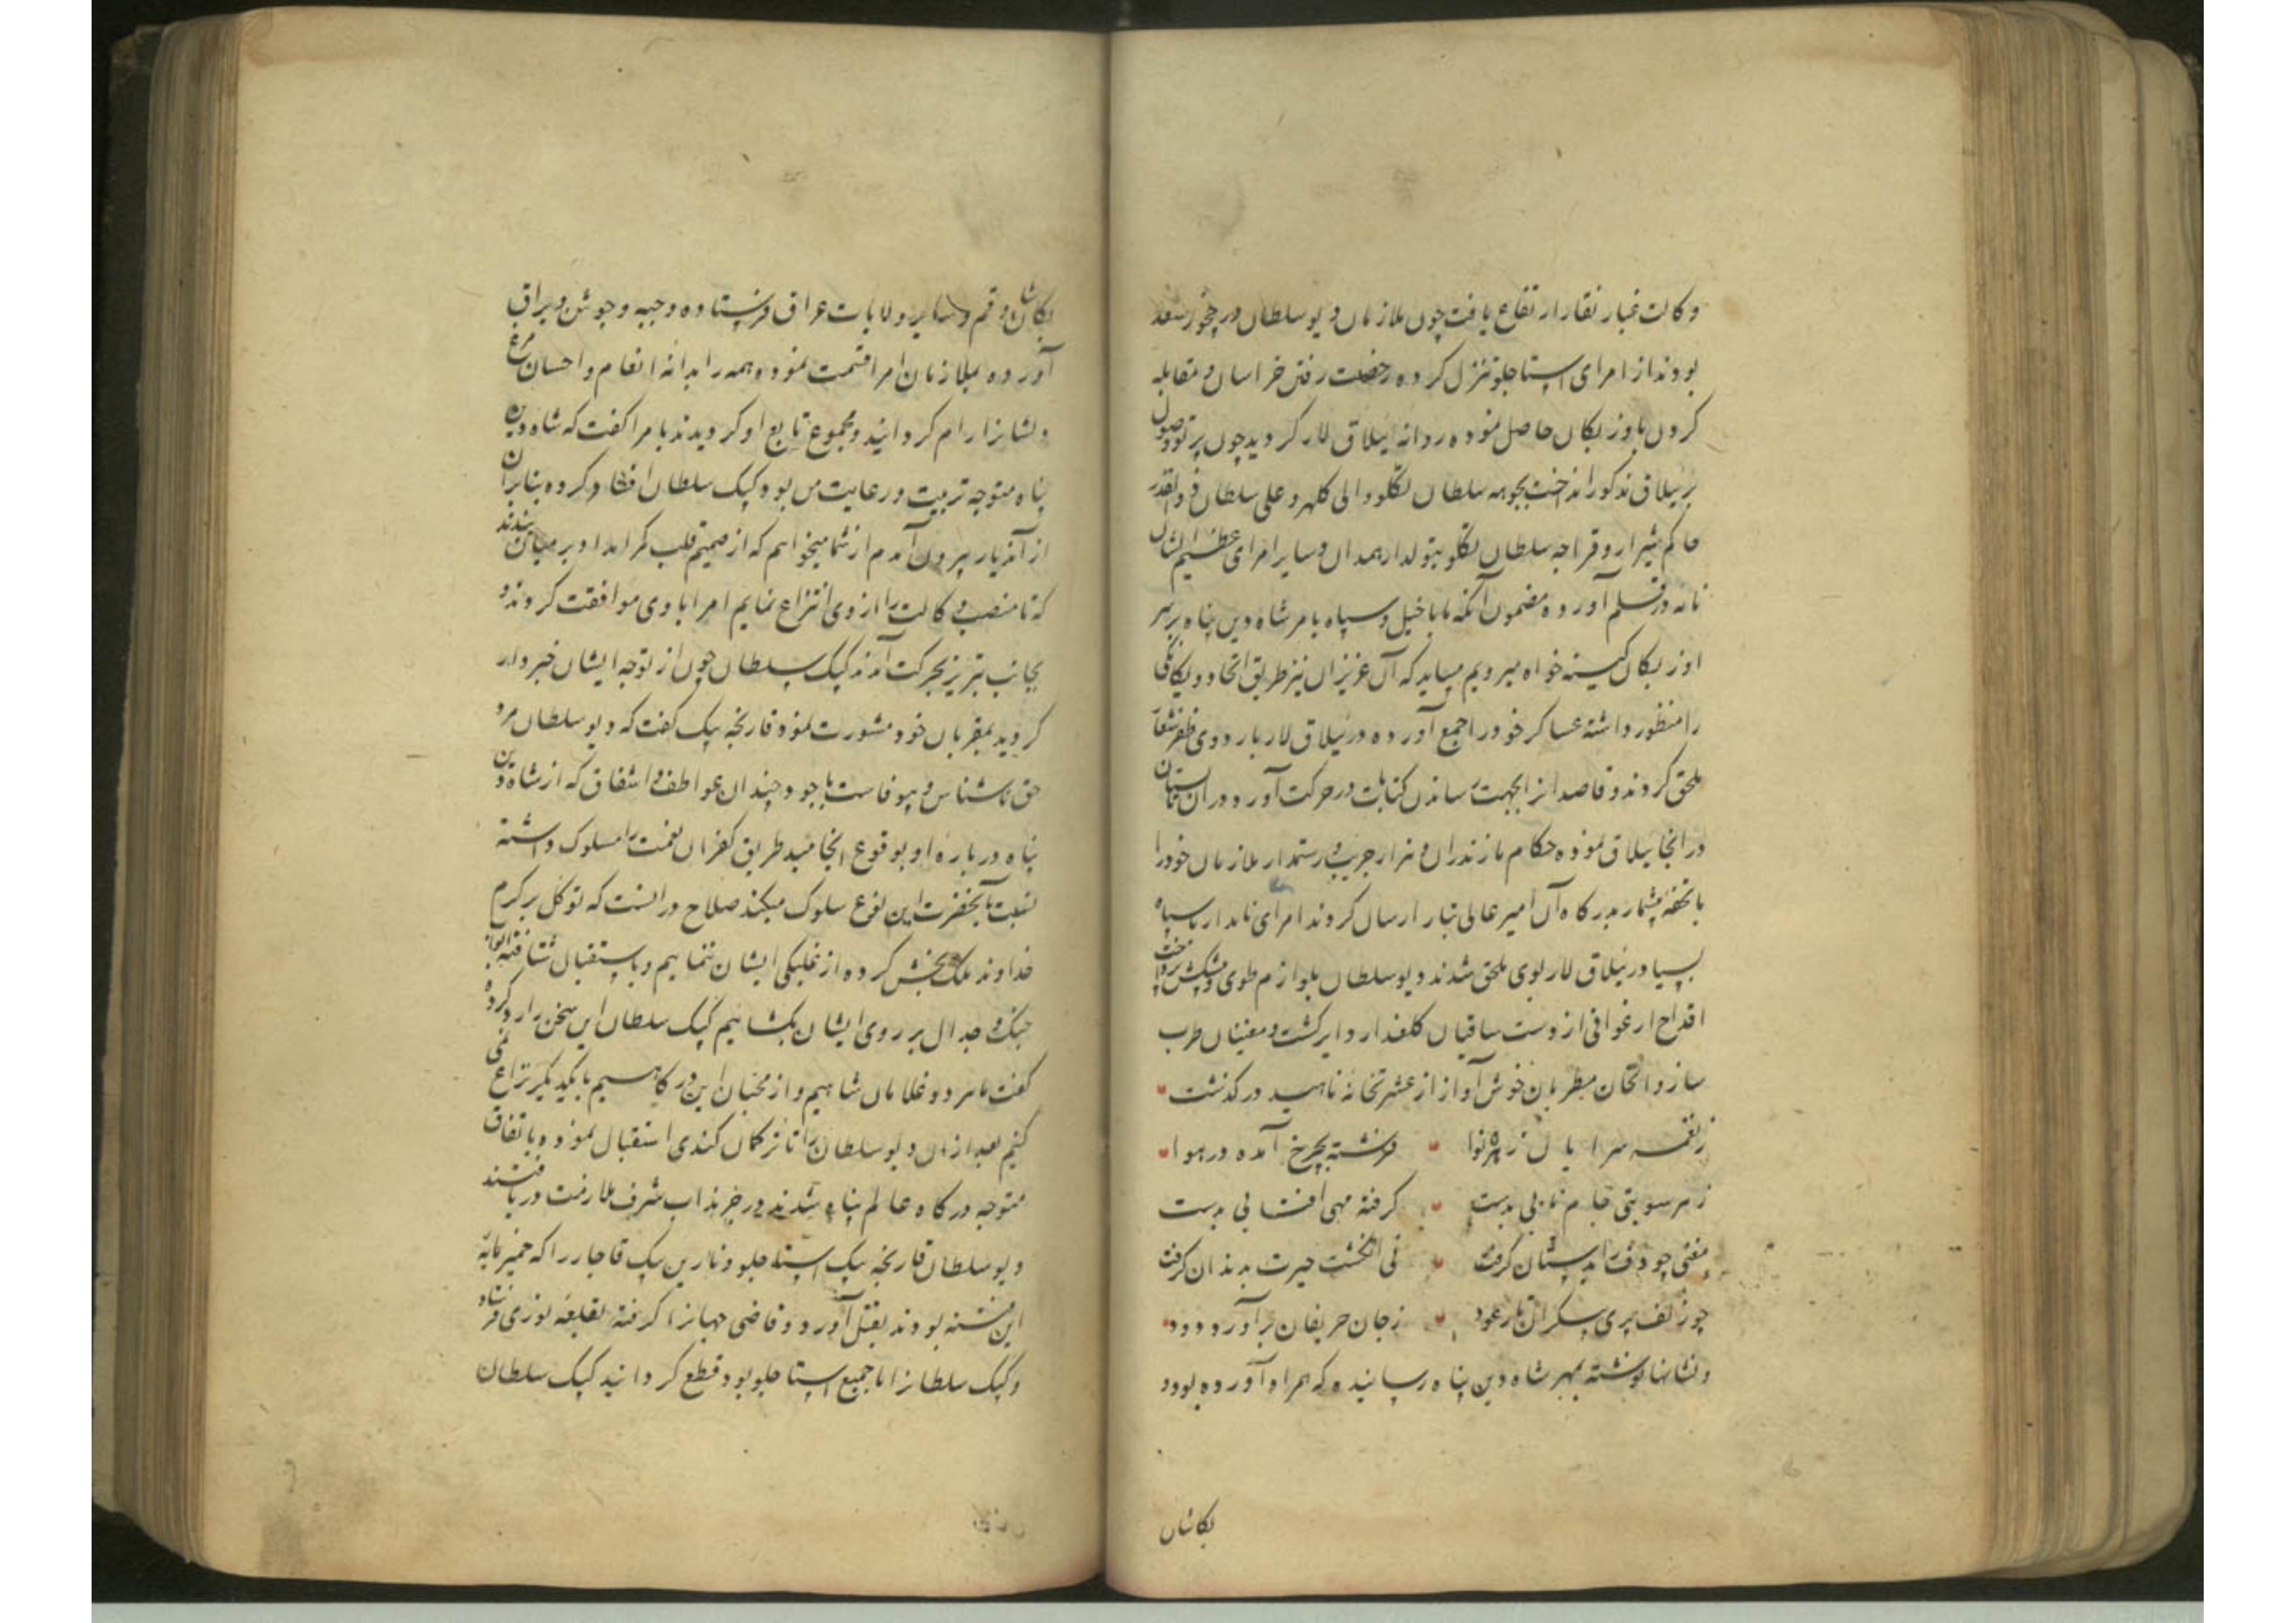 وکالت غبار نقار ارتفاع یافت چون ملازمان دیو سلطان در فخور سعد
بودند از امرای استاجلو تنزل کرده رخصت رفتن خراسان و مقابله
کردن با اوزبکان حاصل نموده روانه ییلاق لار کردید چون پرتو وصول
بر ییلاق مذکور انداخت بجوهه سلطان تکلو والی کلهر و علی سلطان ذوالقدر
حاکم شیراز و قراجه سلطان تکلو تیولدار همدان و سایر امرای عظیم الشان
نامه در قلم آورده مضمون آنکه ما با خیل و سپاه بامر شاه دین پناه بر سر
اوزبکان کینه خواه میرویم میباید که آن عزیزان نیز طریق اتحاد و یکانکی
را منظور داشته عساکر خود را جمع آورده در ییلاق لار باردوی ظفر شعار
ملحق کردند و قاصدانرا بجهت رساندن کتابت در حرکت آورد و در آن تابستان
در انجا ییلاق نموده حکام مازندران و هزار جریب و رستمدار ملازمان خود را
با تحفه بیشمار بدرکاه آن امیر عالی تبار ارسال کردند امرای نامدار با سپاه
بسیار در ییلاق لار بوی ملحق شدند دیو سلطان بلوازم طوی و پیشکش پرداخت
اقداح ارغوانی از دست ساقیان کلعذار دایر کشت و مغنیان طرب
ساز و الحان مطربان خوش آواز از عشرتخانه ناهید درکذشت
ز نغمه سرایان زهره نوا فرشته بچرخ آمده در هوا
ز هر سو بتی جام نابی بدست کرفته مهی افتابی بدست
مغنی چو دف را بدستان کرفت نی انکشت حیرت بدندان کرفت
چو زلف پری پیکران تار عود ز جان حریفان برآورد دود
و نشانها نوشته بمهر شاه دین پناه رسانیده که همراه آورده بود و
بکاشان
بکاشان و قم و سایر ولایات عراق فرستاده و جبه و جوشن و یراق
آورده بملازمان امرا قسمت نمود و همه را بدانه انعام و احسان مرغ
دلشانرا رام کردانید و مجموع تابع او کردیدند بامرا کفت که شاه دین
پناه متوجه تربیت و رعایت من بود کپک سلطان افساد کرده بنابران
از آندیار بیرون آمدم از شما میخواهم که از صمیم قلب کمر امداد بر میان بندند
که تا منصب وکالت را از وی انتزاع نمایم امرا با وی موافقت کردند و
بجانب تبریز بحرکت آمدند کپک سلطان چون از توجه ایشان خبردار
کردید بمقربان خود مشورت نمود قارنجه بیک کفت که دیو سلطان مرد
حق ناشناس و بیوفاست با وجود چندان عواطف و اشفاق که از شاه دین
پناه در باره او بوقوع انجامید طریق کفران نعمت را مسلوک داشته
نسبت بآنحضرت این نوع سلوک میکند صلاح در انست که توکل بر کرم
خداوند ملک بخش کرده از غلبکی ایشان ننماییم و باستقبال شتافته ابواب
جنک و جدال بر روی ایشان بکشاییم کپک سلطان این سخن را رد کرده
کفت ما هر دو غلامان شاهیم و از محبان این درکاهیم با یکدیکر نزاع نمی
کنیم بعد از ان دیو سلطان را تا ترکمان کندی استقبال نموده باتفاق
متوجه درکاه عالم پناه شدند در خرنداب شرف ملازمت دریافتند
دیو سلطان قارنجه بیک استاجلو و نارین بیک قاجار را که خمیر مایه
این فتنه بودند بقتل آورد و قاضی جهانرا کرفته بقلعه لوری فرستاد
و کپک سلطانرا با جمیع استاجلو بود قطع کردانید کپک سلطان